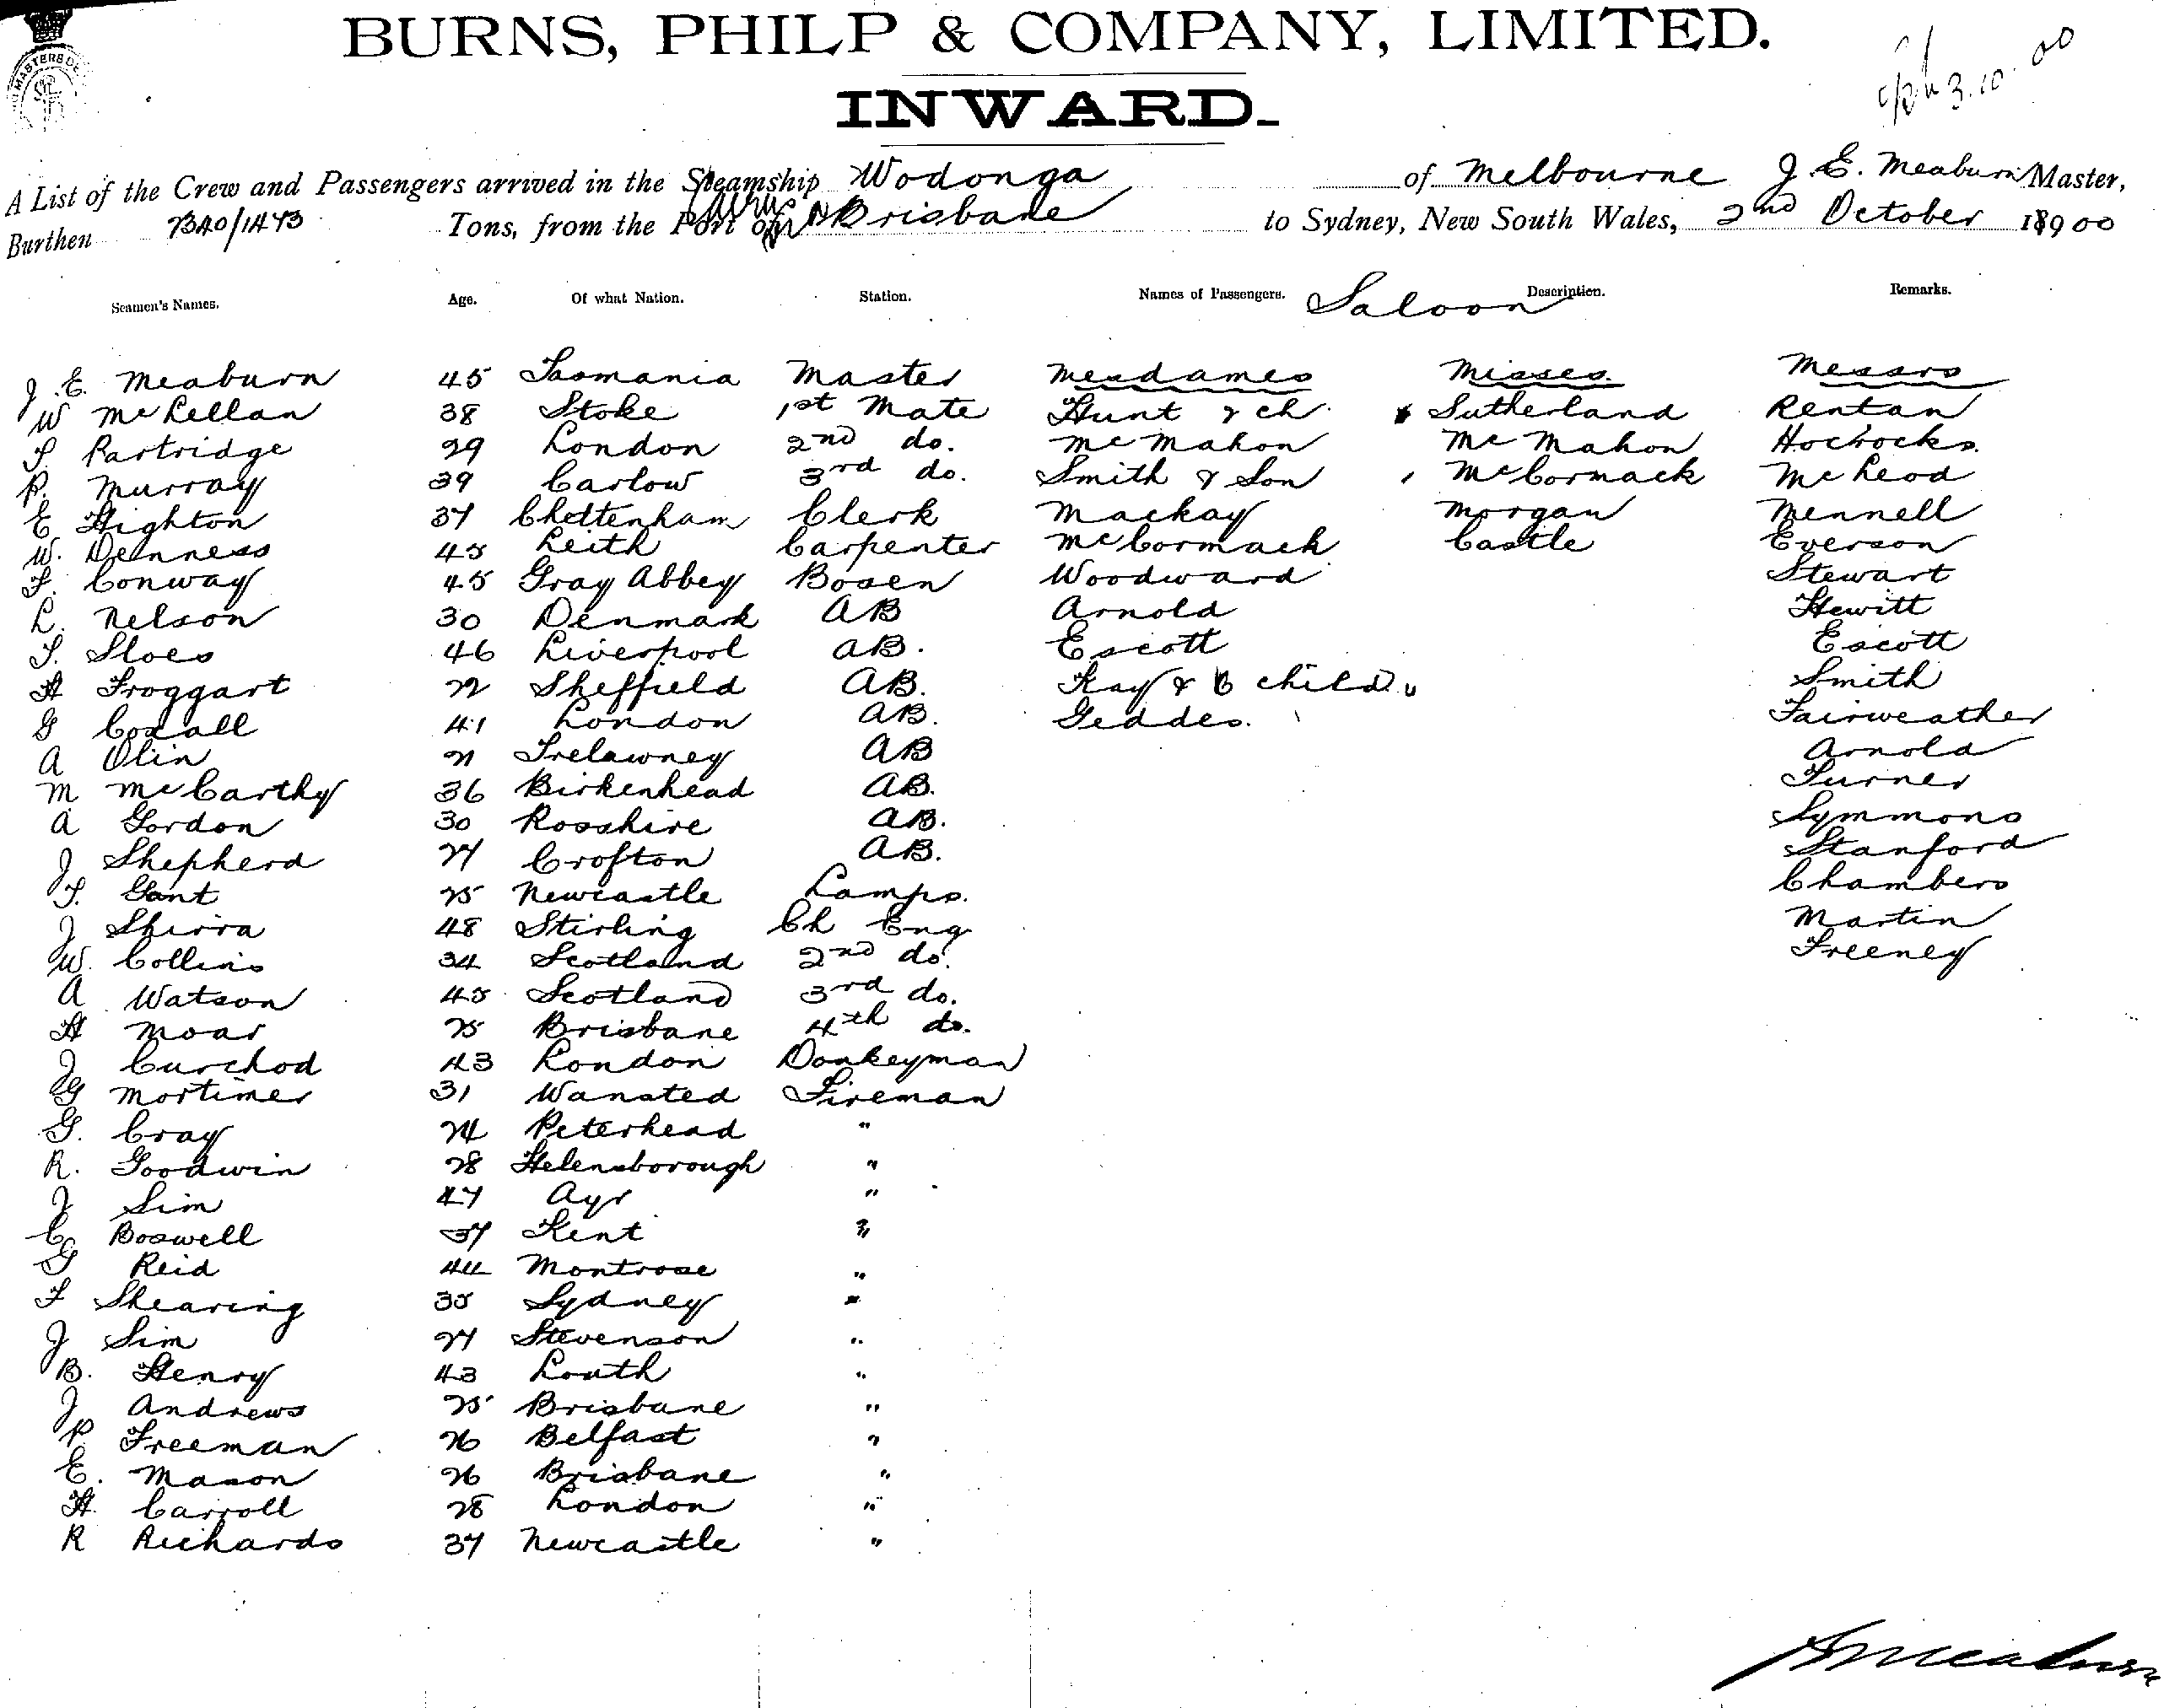 BURNS, PHILP & COMPANY, LIMITED.
INWARD.
3.10.00
A List of the Crew and Passengers arrived in the Steamship Wodonga of Melbourne J. E. Meaburn Master,
Burthen 2340/1473 Tons, from the Port of Brisbane to Sydney, New South Wales, 2nd October 1900
Seamen's Names. Age. Of what Nation. Station. Names of Passengers. Saloon Description. Remarks.
J. E. Meaburn 45 Tasmania Master Mesdames Misses Messrs
W McLellan 38 Stoke 1st Mate Hunt & ch. Sutherland Rentan
Partridge 29 London 2nd do. McMahon McMahon Horrocks
P. Murray 39 Carlow 3rd do. Smith & Son McCormack McLeod
E Highton 37 Cheltenham Clerk Mackay Morgan Mennell
W. Denness 45 Leith Carpenter McCormack Castle Everson
F. Conway 45 Gray Abbey Bosen Woodward Stewart
L. Nelson 30 Denmark AB Arnold Hewitt
Sloes 46 Liverpool AB. Escott Escott
H Froggart 22 Sheffield AB. Kay & child Smith
G Coxall 41 London AB. Geddes. Fairweather
A Olin 21 Trelawney AB Arnold
M McCarthy 36 Birkenhead AB. Turner
A Gordon 30 Rosshire AB. Symmons
J Shepherd 27 Crofton AB. Stanford
T. Gant 25 Newcastle Lamps. Chambers
J Shirra 48 Stirling Ch Eng Martin
W. Collins 34 Scotland 2nd do. Freeney
A Watson 45 Scotland 3rd do.
H Moar 25 Brisbane 4th do.
J Curchod 43 London Donkeyman
G Mortimer 31 Wansted Fireman
G. Cray 24 Peterhead "
R. Goodwin 28 Helensborough "
J Sim 47 Ayr "
C Boswell 37 Kent "
G Reid 44 Montrose "
F Shearing 35 Sydney "
J Sim 27 Stevenson "
B. Henry 43 Louth "
J Andrews 25 Brisbane "
P Freeman 26 Belfast "
E. Mason 26 Brisbane "
H. Carroll 28 London "
R Richards 37 Newcastle "
Meaburn